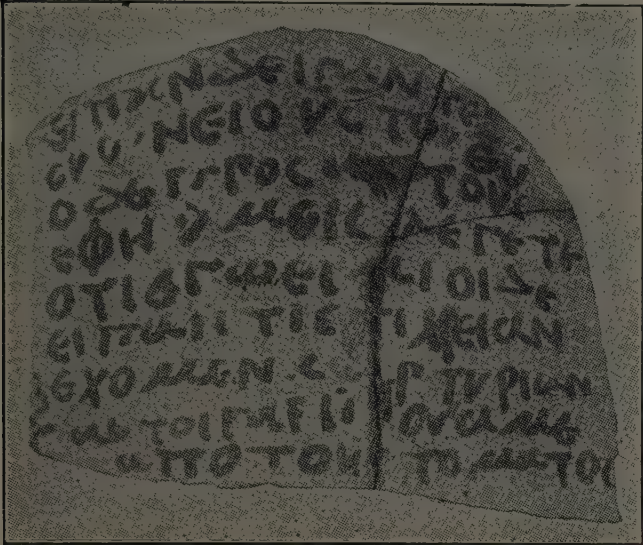 ειπανδε παντε
συουνειουςτου θυ
οδε προς αυτους
εφη υμεις λεγετε
οτι εγωειμι οιδε
ειπαν τι ετι χρειαν
εχομεν μαρτυριων
αυτοιγαρ ηκουσαμε
αποτου στοματος